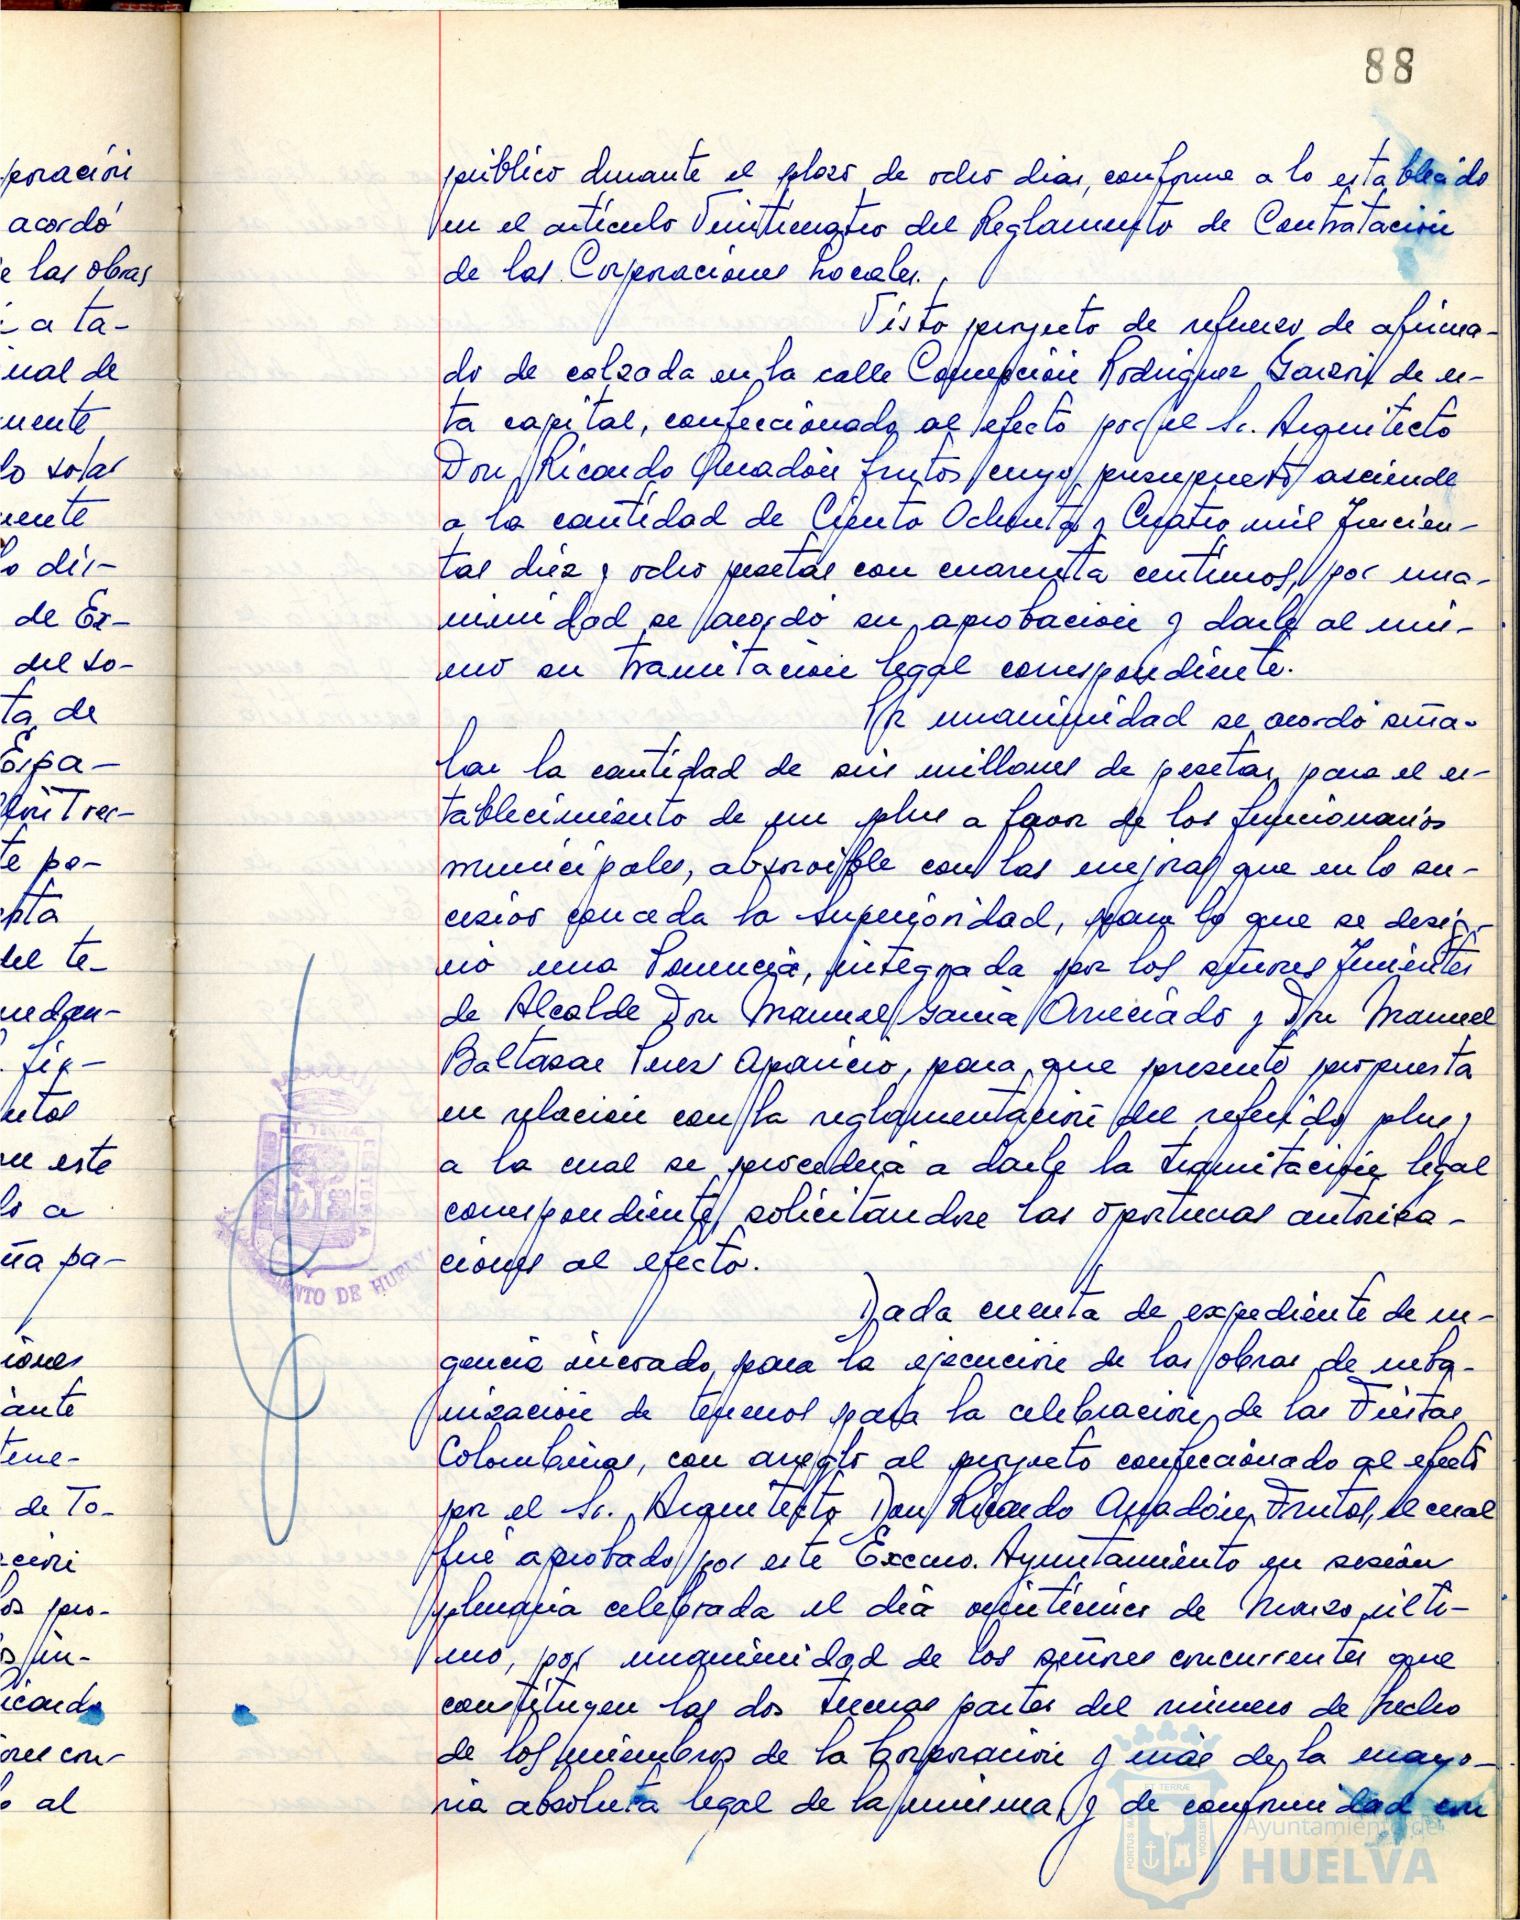 88
poración
acordó
e las obras
a ta-
ual de
mente
lo solar
mente
lo dis-
de Ex-
del so-
ta de
Espa-
te po-
del te-
quedan-
este
lo a
ña pa-
ciones
tene-
de To-
ción
los pro-
Ricardo
ores con-
al
público durante el plazo de ocho dias, conforme a lo establecido
en el artículo Veinticuatro del Reglamento de Contratación
de las Corporaciones Locales.
Visto proyecto de refuerzo de afirma-
do de calzada en la calle Concepción Rodriguez Garzón de es-
ta capital, confeccionado al efecto por el Sr. Arquitecto
Don Ricardo Anadón Frutos cuyo presupuesto asciende
a la cantidad de Ciento Ochenta y Cuatro mil Trescien-
tas diez y ocho pesetas con cuarenta centimos, por una-
nimidad se acordó su aprobación y darle al mis-
mo su tramitación legal correspondiente.
Por unanimidad se acordó seña-
lar la cantidad de seis millones de pesetas, para el es-
tablecimiento de un plus a favor de los funcionarios
municipales, absorbible con las mejoras que en lo su-
cesivo conceda la Superioridad, para lo que se desig-
nó una Ponencia, integrada por los señores Tenientes
de Alcalde Don Manuel Garcia Orreciado y Don Manuel
Baltasar Perez Aparicio, para que presente propuesta
en relación con la reglamentación del referido plus,
a la cual se procederá a darle la tramitación legal
correspondiente, solicitandose las oportunas autoriza-
ciones al efecto.
Dada cuenta de expediente de ur-
gencia incoado, para la ejecución de las obras de urba-
nización de terrenos para la celebración de las Fiestas
Colombinas, con arreglo al proyecto confeccionado al efecto
por el Sr. Arquitecto Don Ricardo Anadón Frutos, el cual
fué aprobado por este Excmo. Ayuntamiento en sesión
plenaria celebrada el dia veinticinco de Marzo últi-
mo, por unanimidad de los señores concurrentes que
constituyen las dos terceras partes del número de hecho
de los miembros de la Corporación y más de la mayo-
ria absoluta legal de la misma, y de conformidad con
ET TERRÆ
AYUNTAMIENTO DE HUELVA
Ayuntamiento de
HUELVA